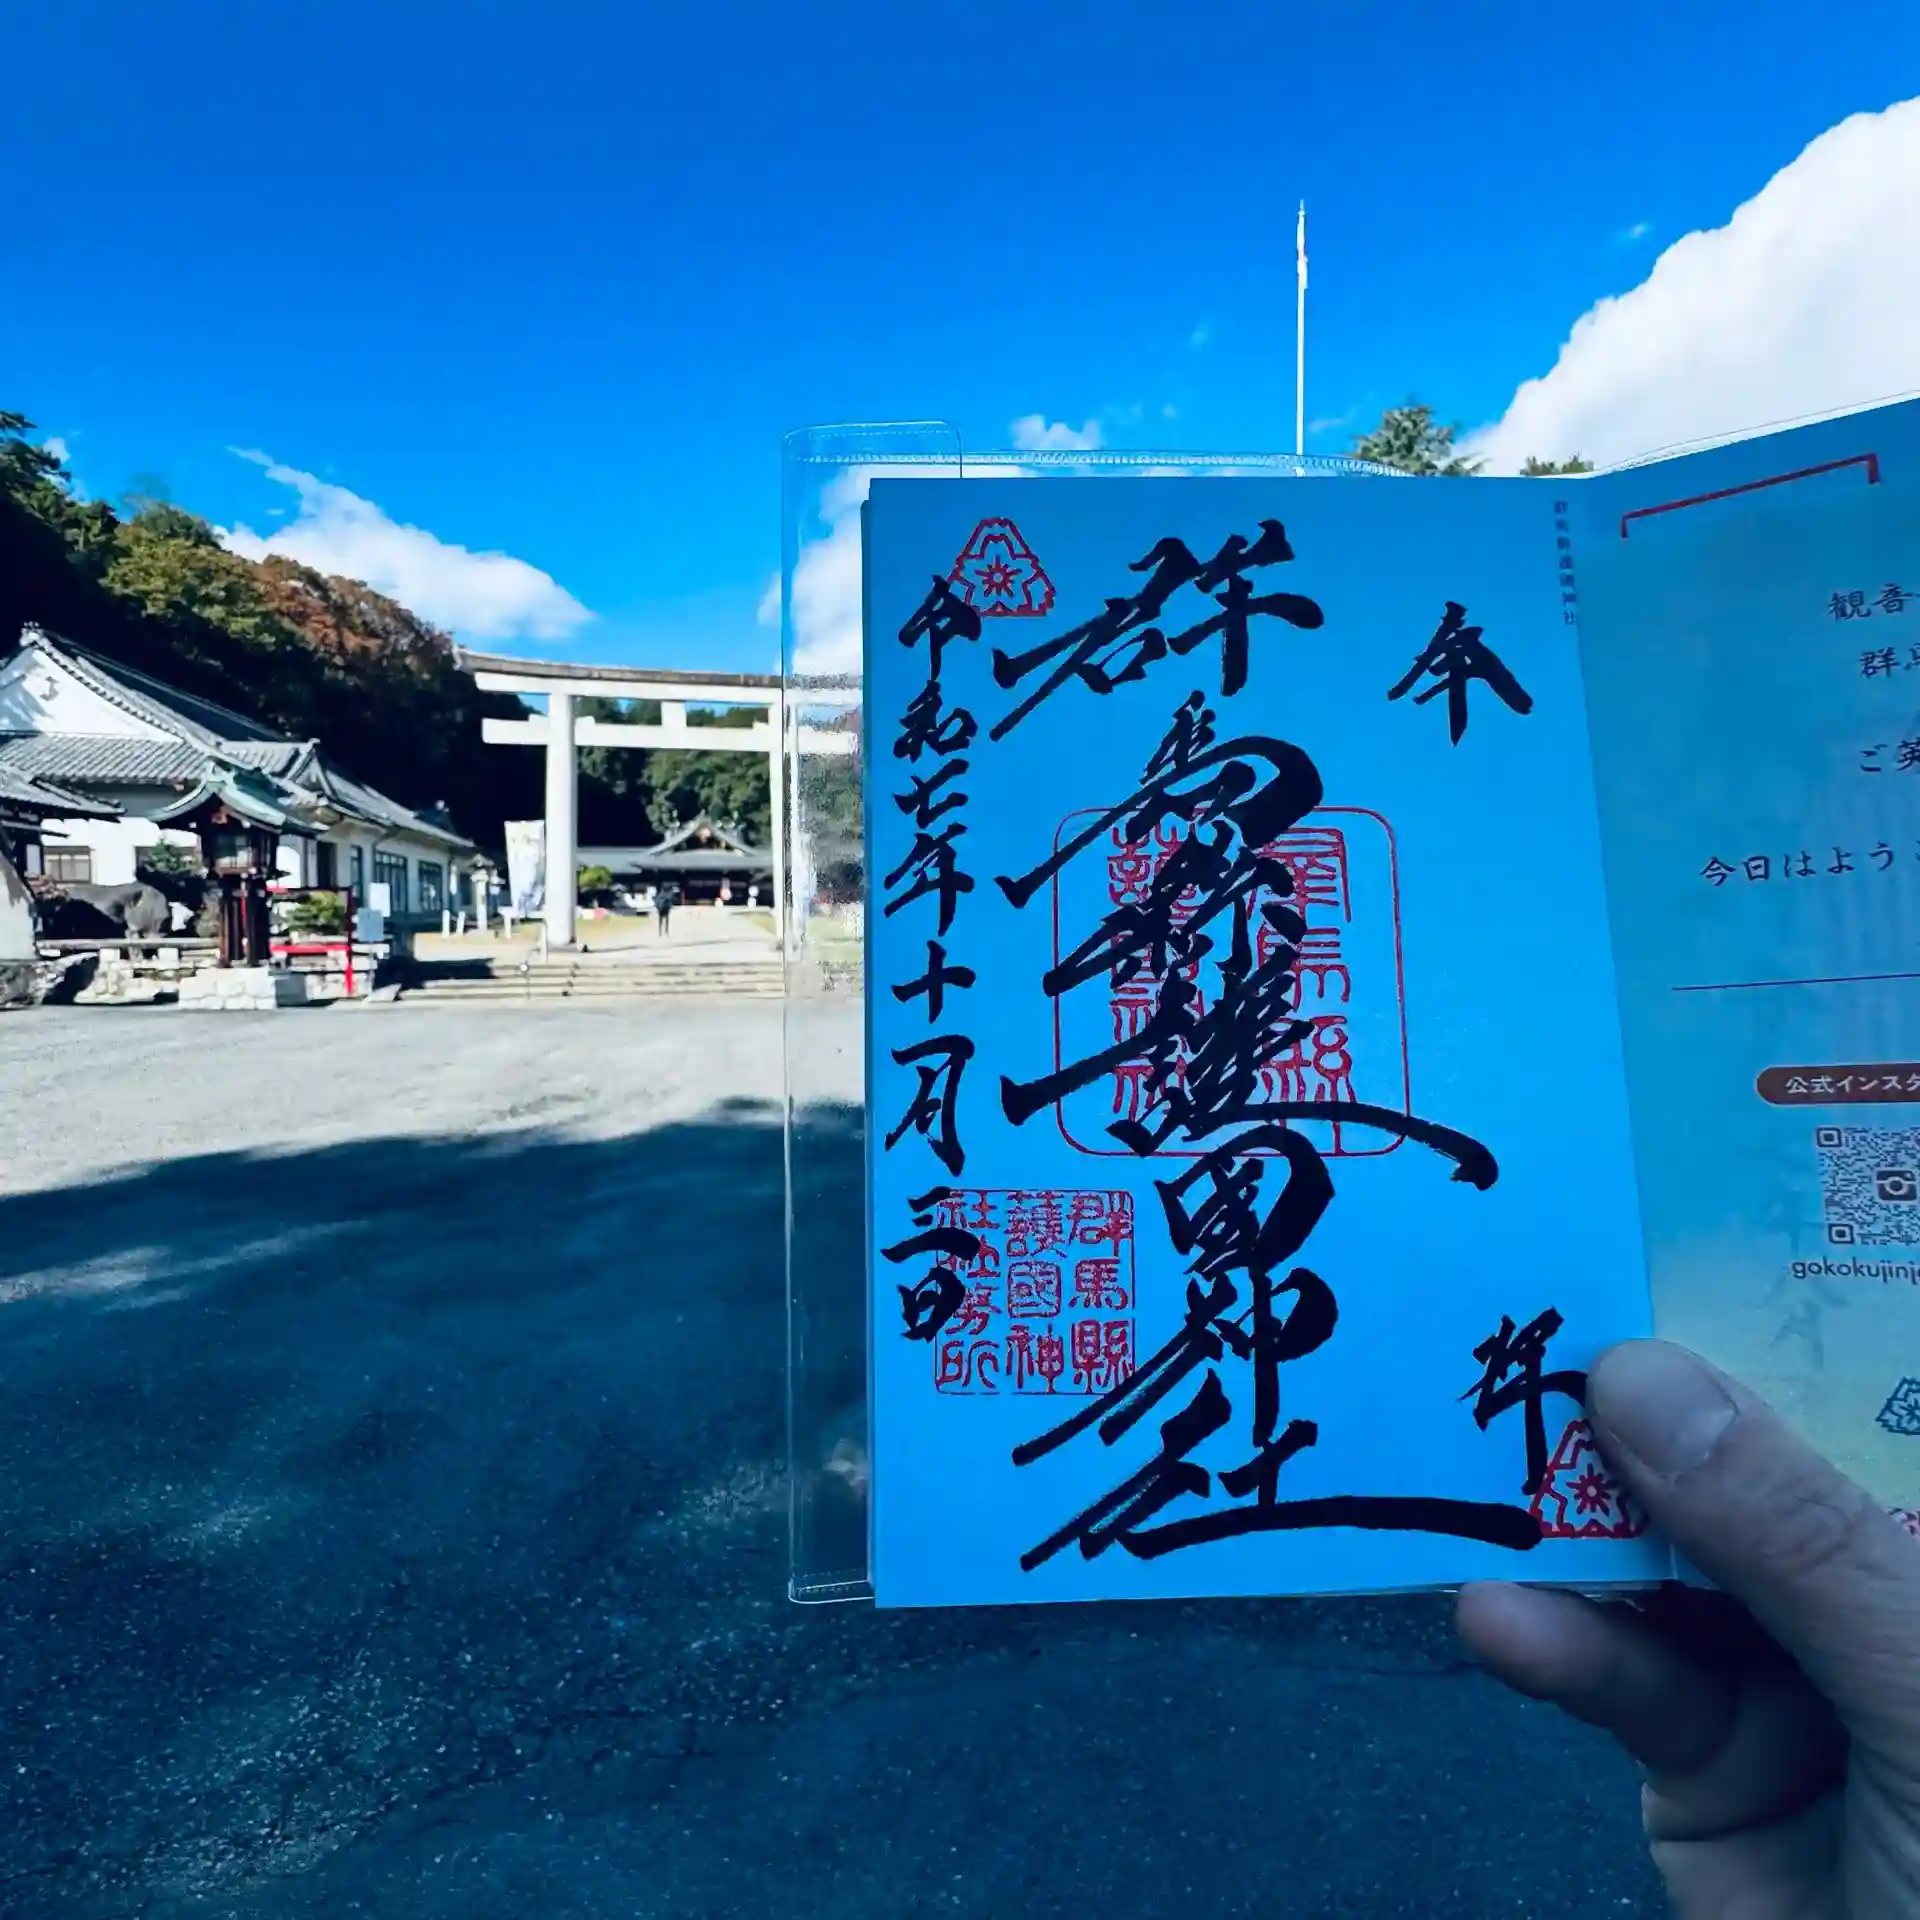 観音
群馬
ご英
今日はよう
公式インスタ
gokokujinj
群馬縣護國神社
奉
拝
群馬縣護國神社
群馬縣
護國神社
令和七年十一月三日
群馬縣
護國神
社社務所